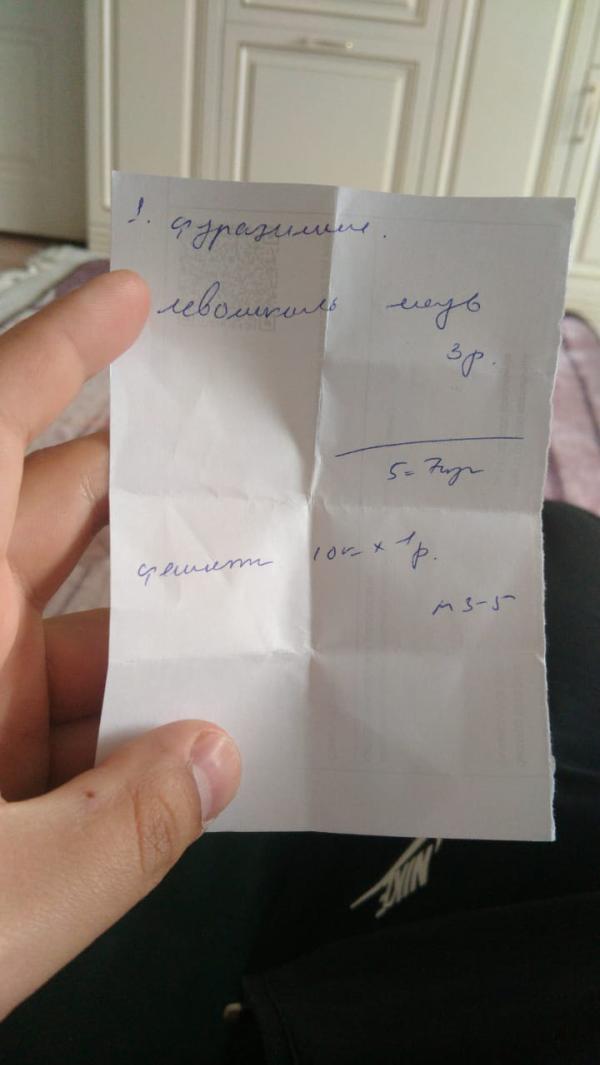 1. фурацилин.
левомиколь мазь
3 р.
5-7 дн
10 к × 1 р.
№ 3-5
NIKE